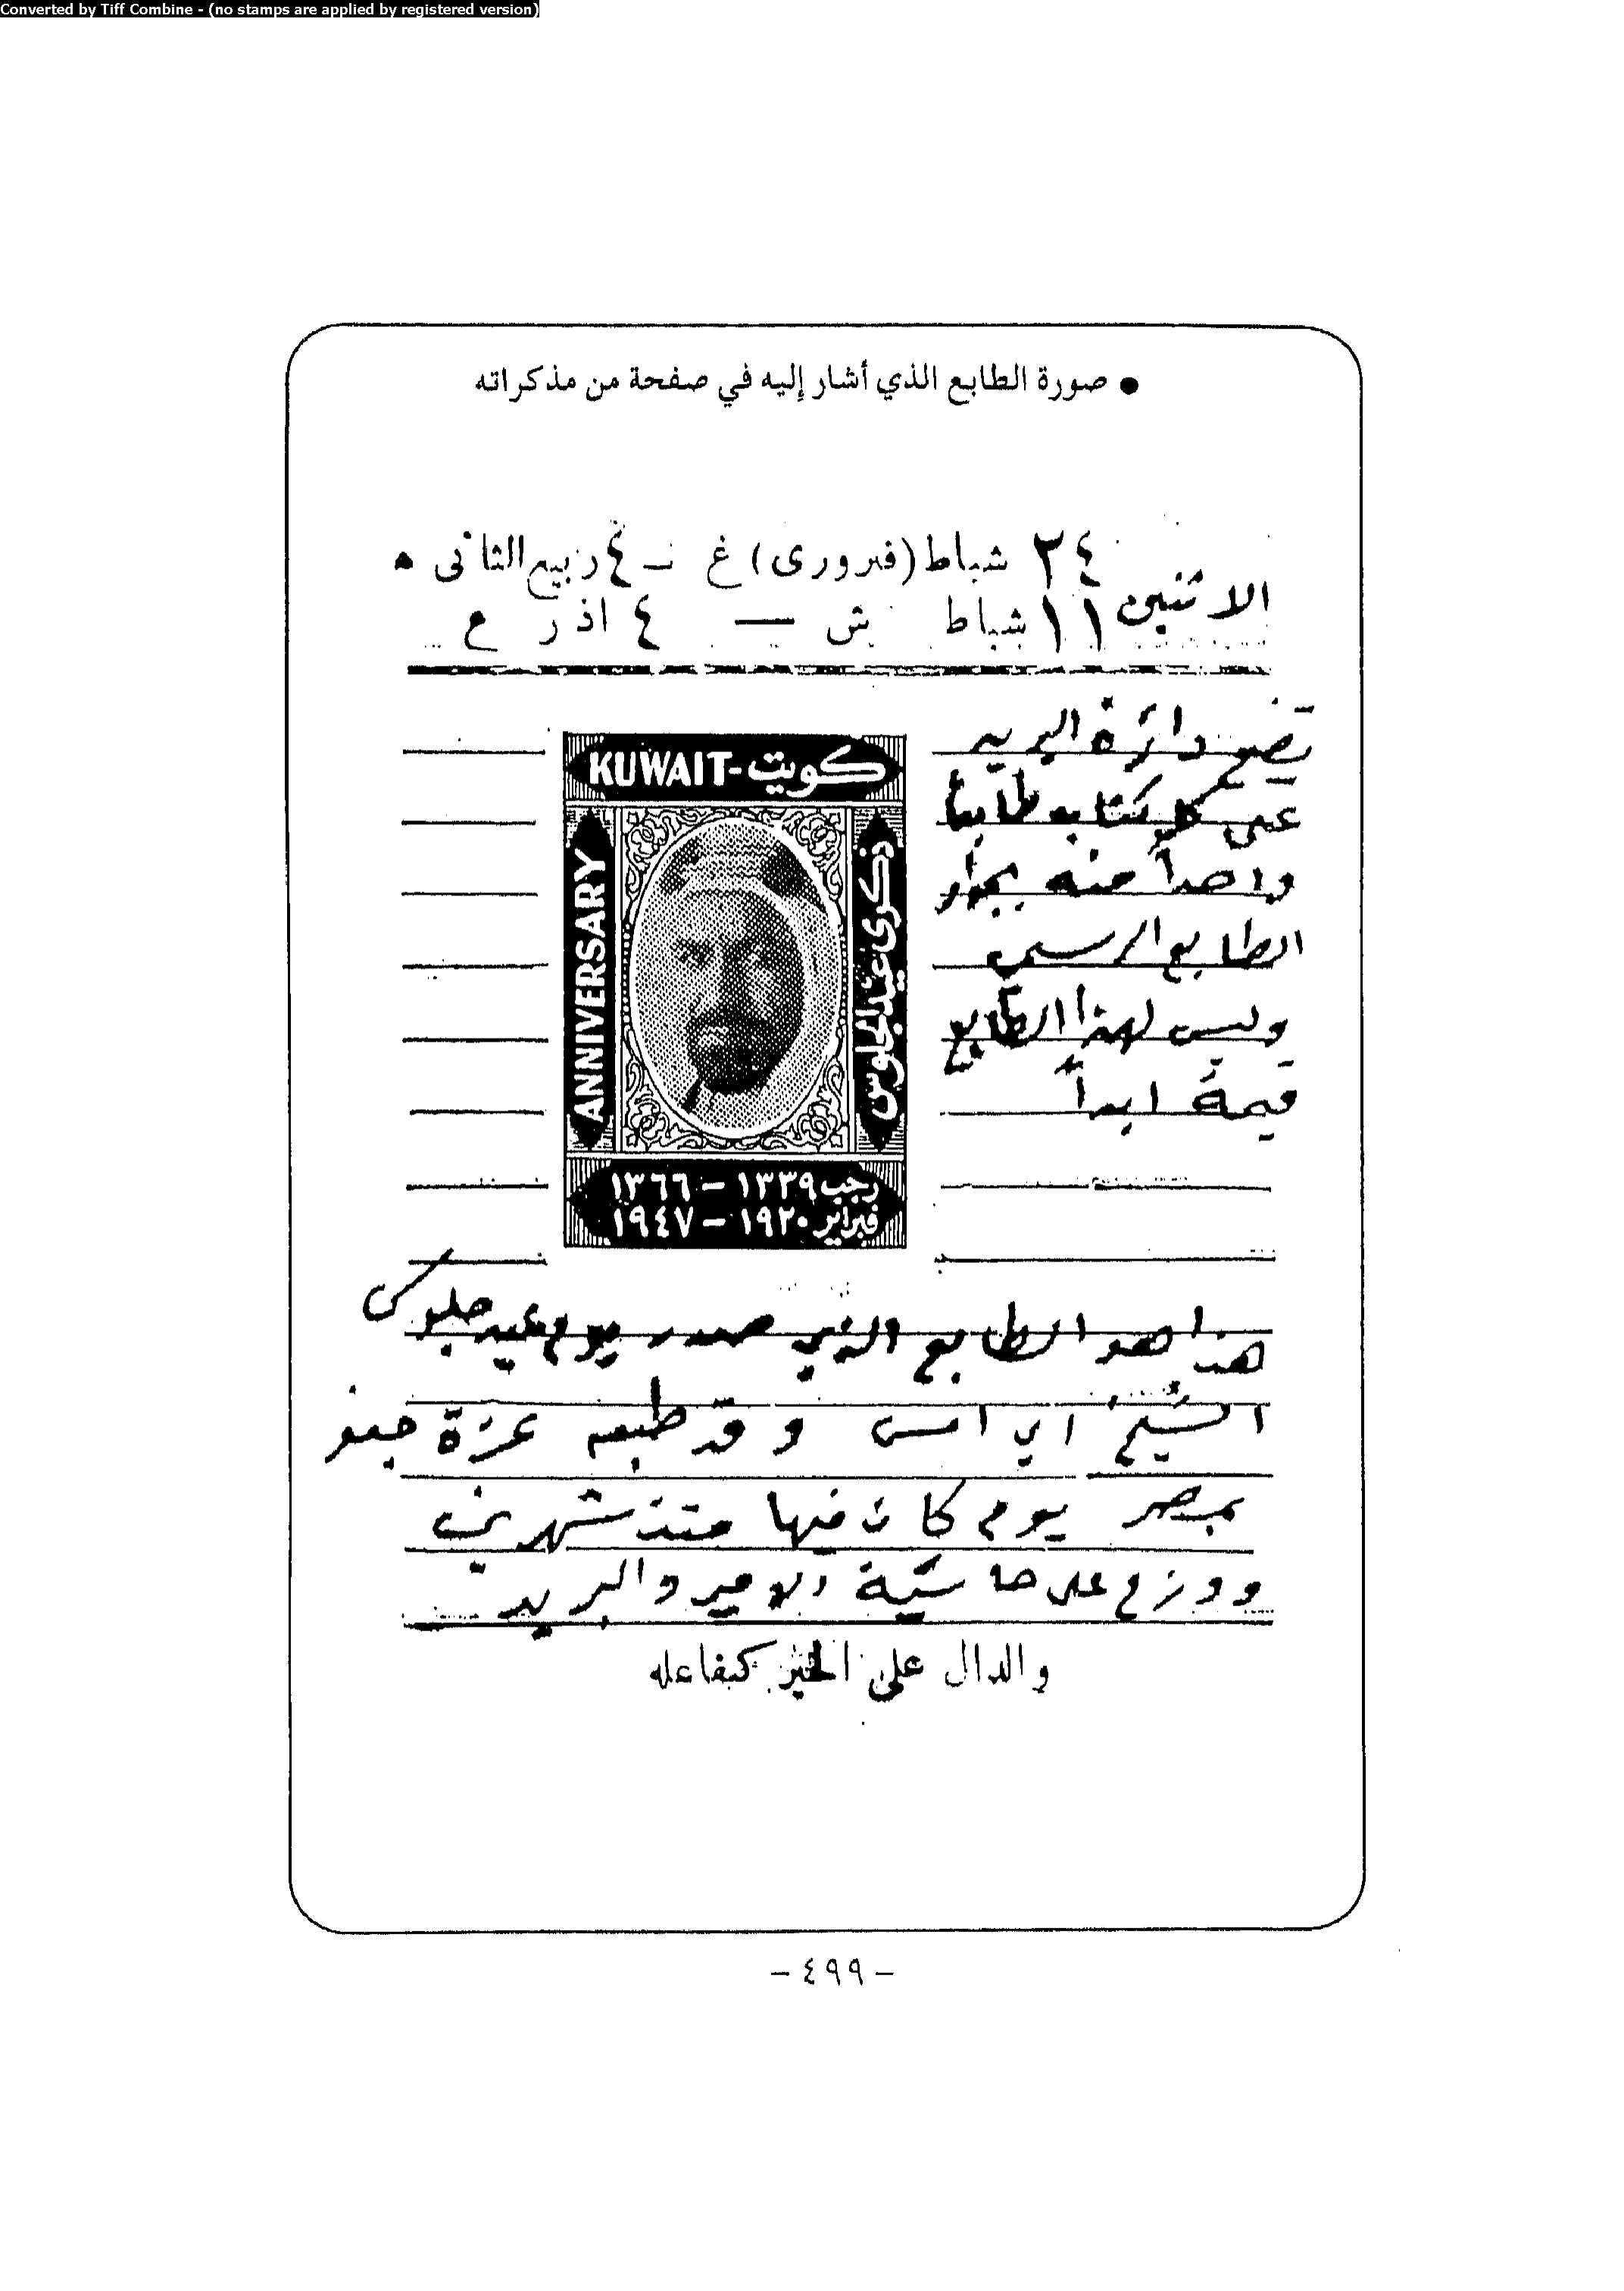 Converted by Tiff Combine - (no stamps are applied by registered version)
● صورة الطابع الذي أشار إليه في صفحة من مذكراته
الاثنين
٢٤ شباط (فبرورى) غ – ٤ ربيع الثانى ه
١١ شباط ش — ٤ اذر ع
تضع دائرة البريد
على كل كتاب طابعاً
واحداً منه بجوار
الطابع الرسمي
وليس لهذا الطابع
قيمة ابداً
KUWAIT-كويت
ANNIVERSARY
ذكرى عيد الجلوس
رجب ١٣٣٩ – ١٣٦٦
فبراير ١٩٢٠ – ١٩٤٧
هذا هو الطابع الذي صدر يوم عيد جلوس
الشيخ اي امس وقد طبعه عزة جعفر
بمصر يوم كان فيها منذ شهرين
ووزع على حاشية الامير والبريد
والدال على الخير كفاعله
- ٤٩٩ -